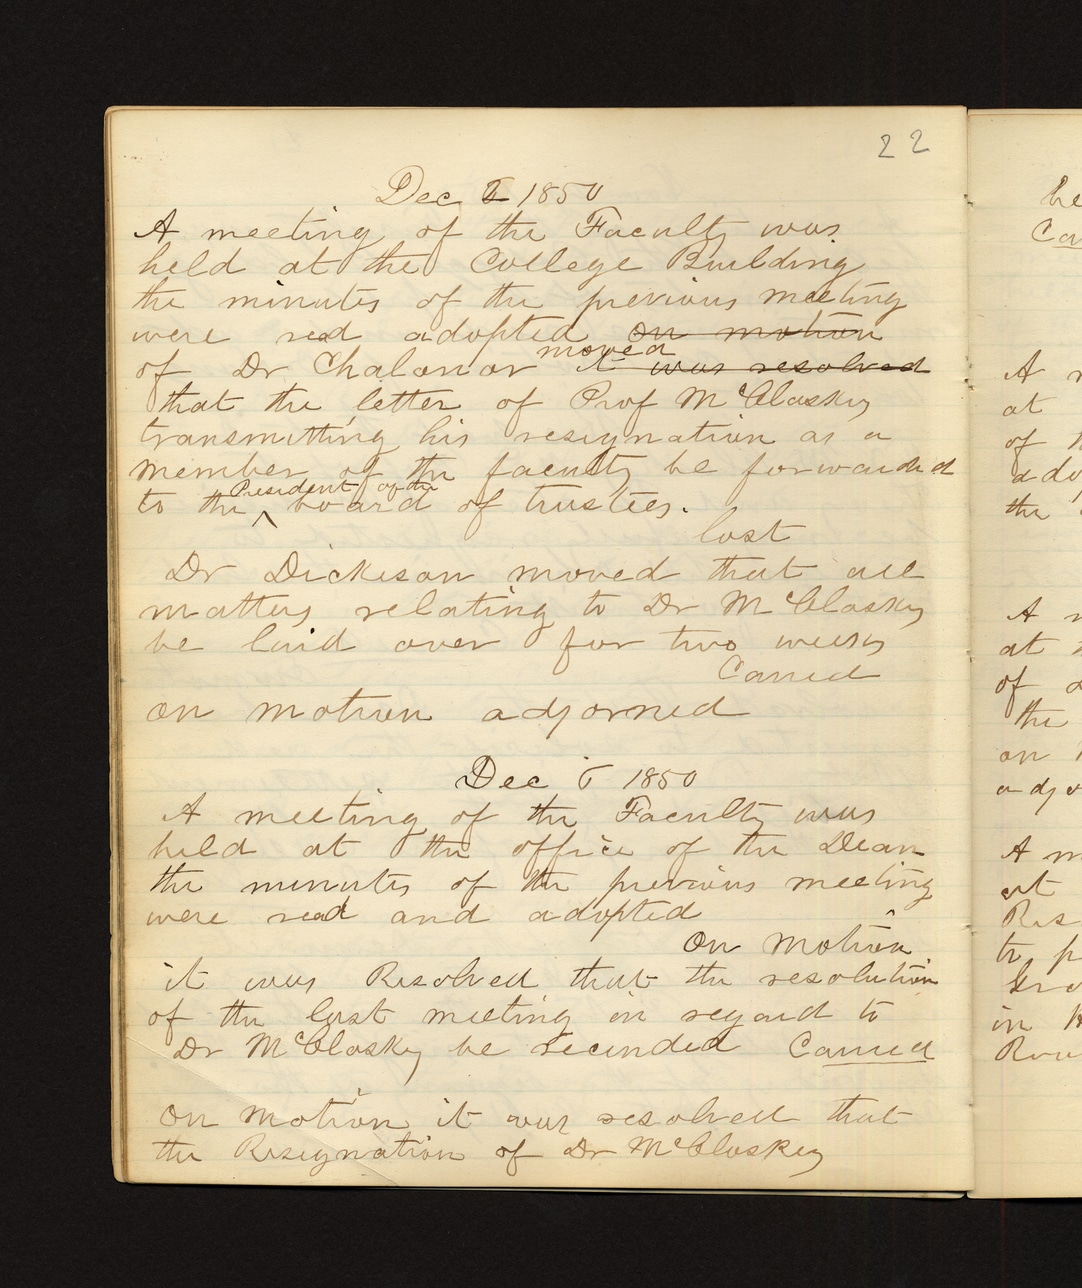 22
Dec 6 1850
A meeting of the Faculty was
held at the College Building
the minutes of the previous meeting
were read adopted on motion
of Dr Chalonor moved it was resolved
that the letter of Prof McCloskey
transmitting his resignation as a
member of the faculty be forwarded
to the President of the board of trustees.
lost
Dr Dickeson moved that all
matters relating to Dr McCloskey
be laid over for two weeks
Carried
on motion adjorned
Dec 6 1850
A meeting of the Faculty was
held at the office of the Dean
the minutes of the previous meeting
were read and adopted
On motion
it was Resolved that the resolution
of the last meeting in regard to
Dr McCloskey be recinded Carried
On motion it was resolved that
the Resignation of Dr McCloskey